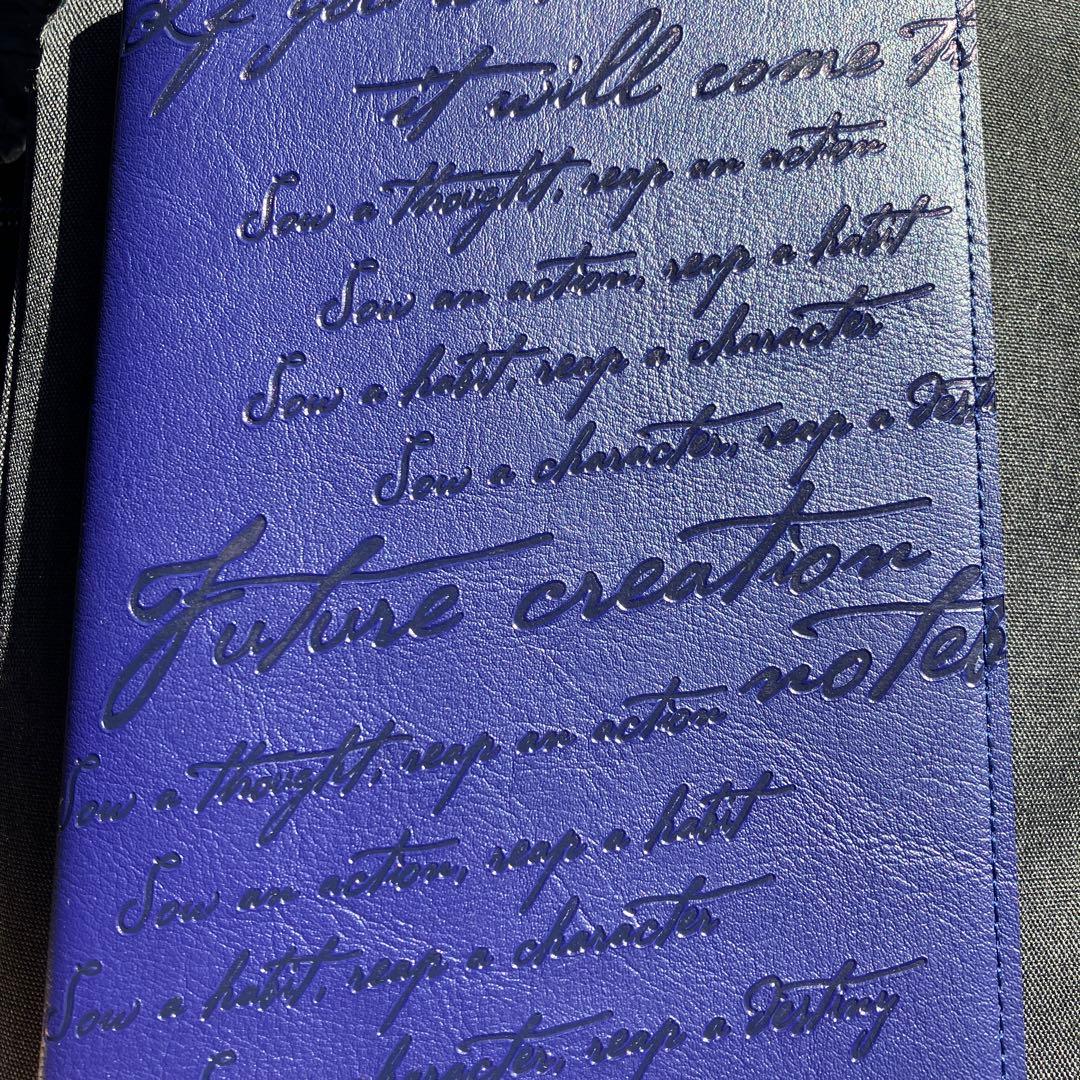 it will come
Sow a thought, reap an action
Sow an action, reap a habit
Sow a habit, reap a character
Sow a character, reap a
Future creation
notes
Sow a thought, reap an action
Sow an action, reap a habit
Sow a habit, reap a character
reap a destiny